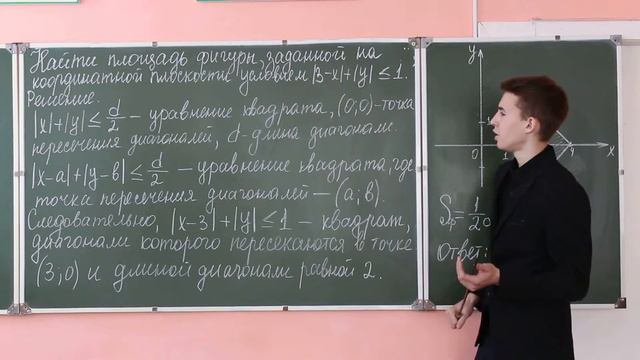 Найти площадь фигуры, заданной на
координатной плоскости условием |3-x|+|y| ≤ 1.
Решение.
|x|+|y| ≤ d/2 – уравнение квадрата, (0;0)-точка
пересечения диагоналей, d-длина диагонали.
|x-a|+|y-b| ≤ d/2 – уравнение квадрата, где
точка пересечения диагоналей – (a;b).
Следовательно, |x-3|+|y| ≤ 1 – квадрат,
диагонали которого пересекаются в точке
(3;0) и длиной диагонали равной 2.
y
1
0
1
4
x
Ответ: